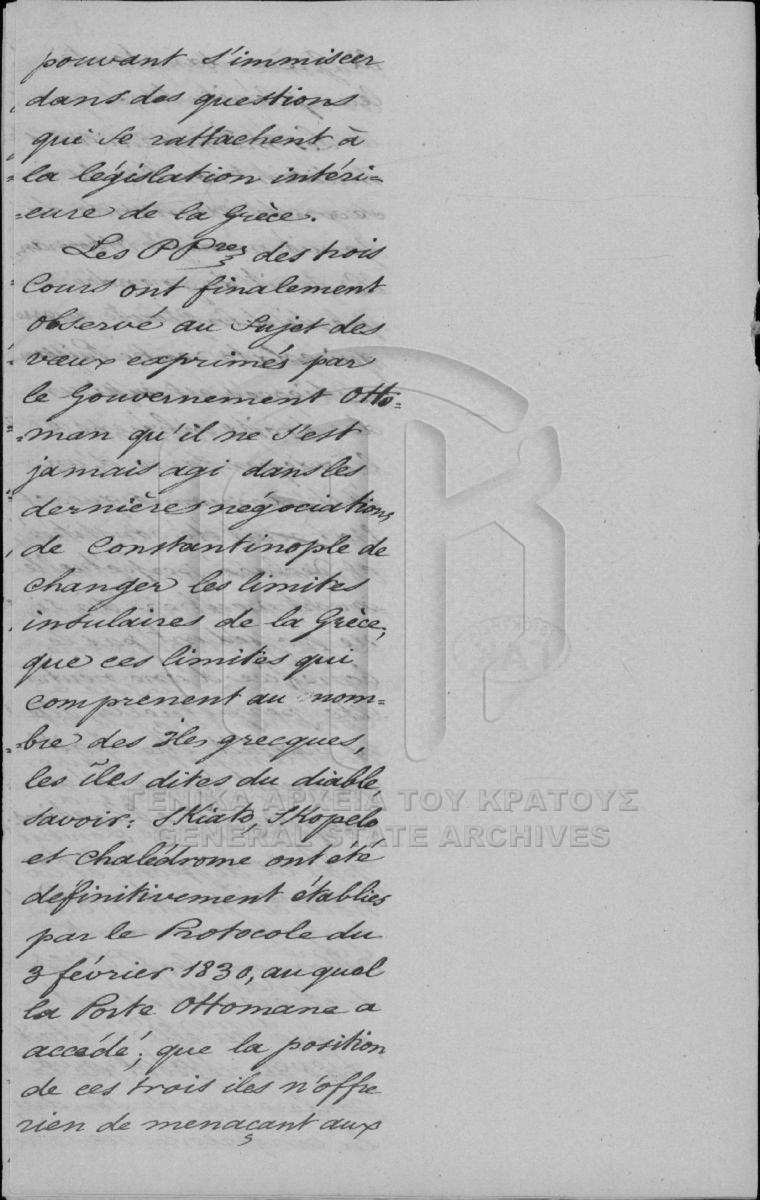 pouvant s'immiscer
dans des questions
qui se rattachent à
la législation intéri-
-eure de la Grèce.
Les PPres des trois
Cours ont finalement
observé au sujet des
vœux exprimés par
le Gouvernement Otto-
-man qu'il ne s'est
jamais agi dans les
dernières négociations
de Constantinople de
changer les limites
insulaires de la Grèce,
que ces limites qui
comprenent au nom-
-bre des îles grecques,
les îles dites du diable,
savoir: Skiato, Skopelo
et Chalédrome ont été
définitivement établies
par le Protocole du
3 février 1830, auquel
la Porte Ottomane a
accédé; que la position
de ces trois îles n'offre
rien de menaçant aux
ΓΕΝΙΚΑ ΑΡΧΕΙΑ ΤΟΥ ΚΡΑΤΟΥΣ
GENERAL STATE ARCHIVES